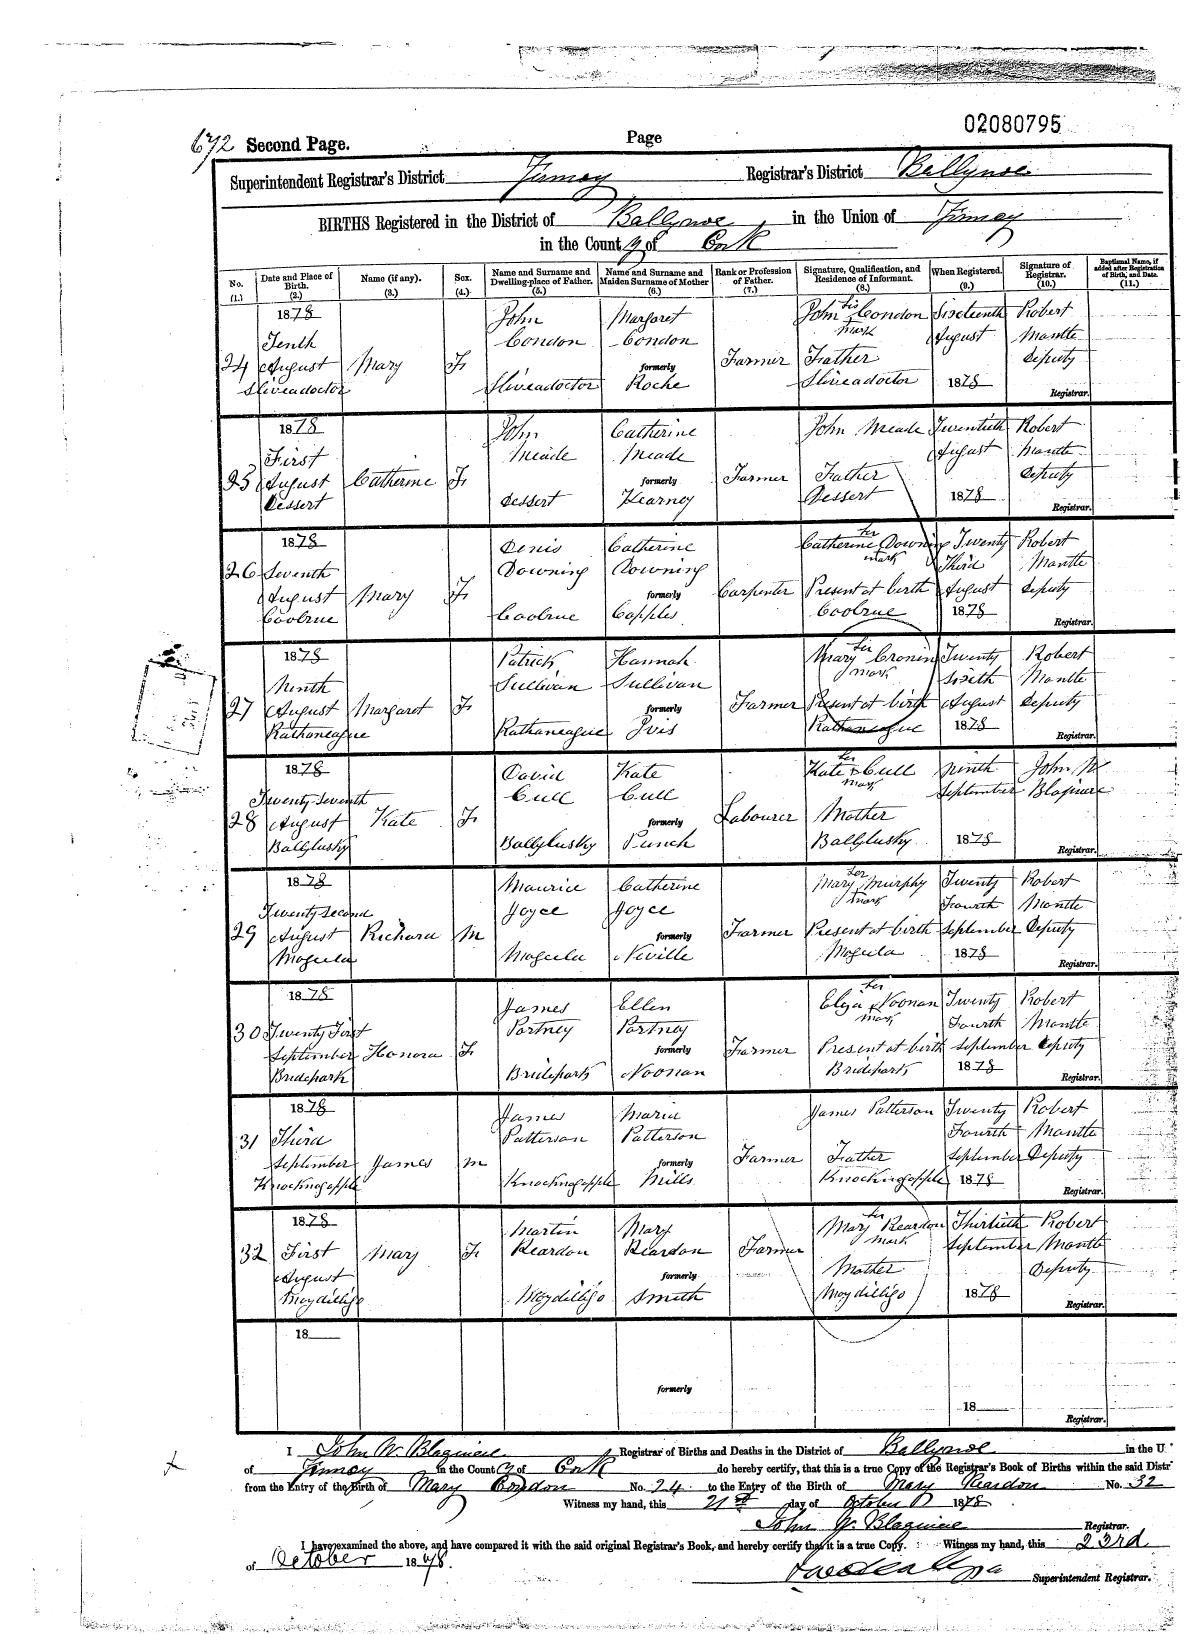 02080795
672 Second Page. Page
Superintendent Registrar's District Fermoy Registrar's District Ballynoe
BIRTHS Registered in the District of Ballynoe in the Union of Fermoy
in the County of Cork
No. (1.) Date and Place of Birth. (2.) Name (if any). (3.) Sex. (4.) Name and Surname and Dwelling-place of Father. (5.) Name and Surname and Maiden Surname of Mother (6.) Rank or Profession of Father. (7.) Signature, Qualification, and Residence of Informant. (8.) When Registered. (9.) Signature of Registrar. (10.) Baptismal Name, if added after Registration of Birth, and Date. (11.)
1878 John Margaret John his Condon Sixteenth Robert
Tenth Condon Condon mark August Mantle
24 August Mary F formerly Farmer Father Deputy
Sliveadoctor Sliveadoctor Roche Sliveadoctor 1878 Registrar.
1878 John Catherine John Meade Twentieth Robert
First Meade Meade August Mantle
25 August Catherine F formerly Farmer Father Deputy
Dessert Dessert Kearney Dessert 1878 Registrar.
1878 Denis Catherine Catherine her Downing Twenty Robert
26 Seventh Downing Downing mark Third Mantle
August Mary F formerly Carpenter Present at birth August Deputy
Coolrue Coolrue Copples Coolrue 1878 Registrar.
1878 Patrick Hannah Mary her Cronin Twenty Robert
Ninth Sullivan Sullivan mark Sixth Mantle
27 August Margaret F formerly Farmer Present at birth August Deputy
Rathaneague Rathaneague Ivis Rathaneague 1878 Registrar.
1878 David Kate Kate her Cull Ninth John W
Twenty Seventh Cull Cull mark September Blaquiere
28 August Kate F formerly Labourer Mother
Ballylusky Ballylusky Punch Ballylusky 1878 Registrar.
1878 Maurice Catherine Mary her Murphy Twenty Robert
Twenty Second Joyce Joyce mark Fourth Mantle
29 August Richard M formerly Farmer Present at birth September Deputy
Mogeela Mogeela Neville Mogeela 1878 Registrar.
1878 James Ellen Eliza her Noonan Twenty Robert
30 Twenty First Portney Portney mark Fourth Mantle
September Honora F formerly Farmer Present at birth September Deputy
Bridepark Bridepark Noonan Bridepark 1878 Registrar.
1878 James Maria James Patterson Twenty Robert
31 Third Patterson Patterson Fourth Mantle
September James M formerly Farmer Father September Deputy
Knocknogapple Knocknogapple Mills Knocknogapple 1878 Registrar.
1878 Martin Mary Mary her Reardon Thirtieth Robert
32 First Mary F Reardon Reardon Farmer mark September Mantle
August formerly Mother Deputy
Moydilligo Moydilligo Smith Moydilligo 1878 Registrar.
18
formerly
18 Registrar.
I John W. Blaquiere Registrar of Births and Deaths in the District of Ballynoe in the U
of Fermoy in the County of Cork do hereby certify, that this is a true Copy of the Registrar's Book of Births within the said Distr
from the Entry of the Birth of Mary Condon No. 24 to the Entry of the Birth of Mary Reardon No. 32
Witness my hand, this 21st day of October 1878
John W. Blaquiere Registrar.
I have examined the above, and have compared it with the said original Registrar's Book, and hereby certify that it is a true Copy. Witness my hand, this 23rd
of October 1878.
Superintendent Registrar.